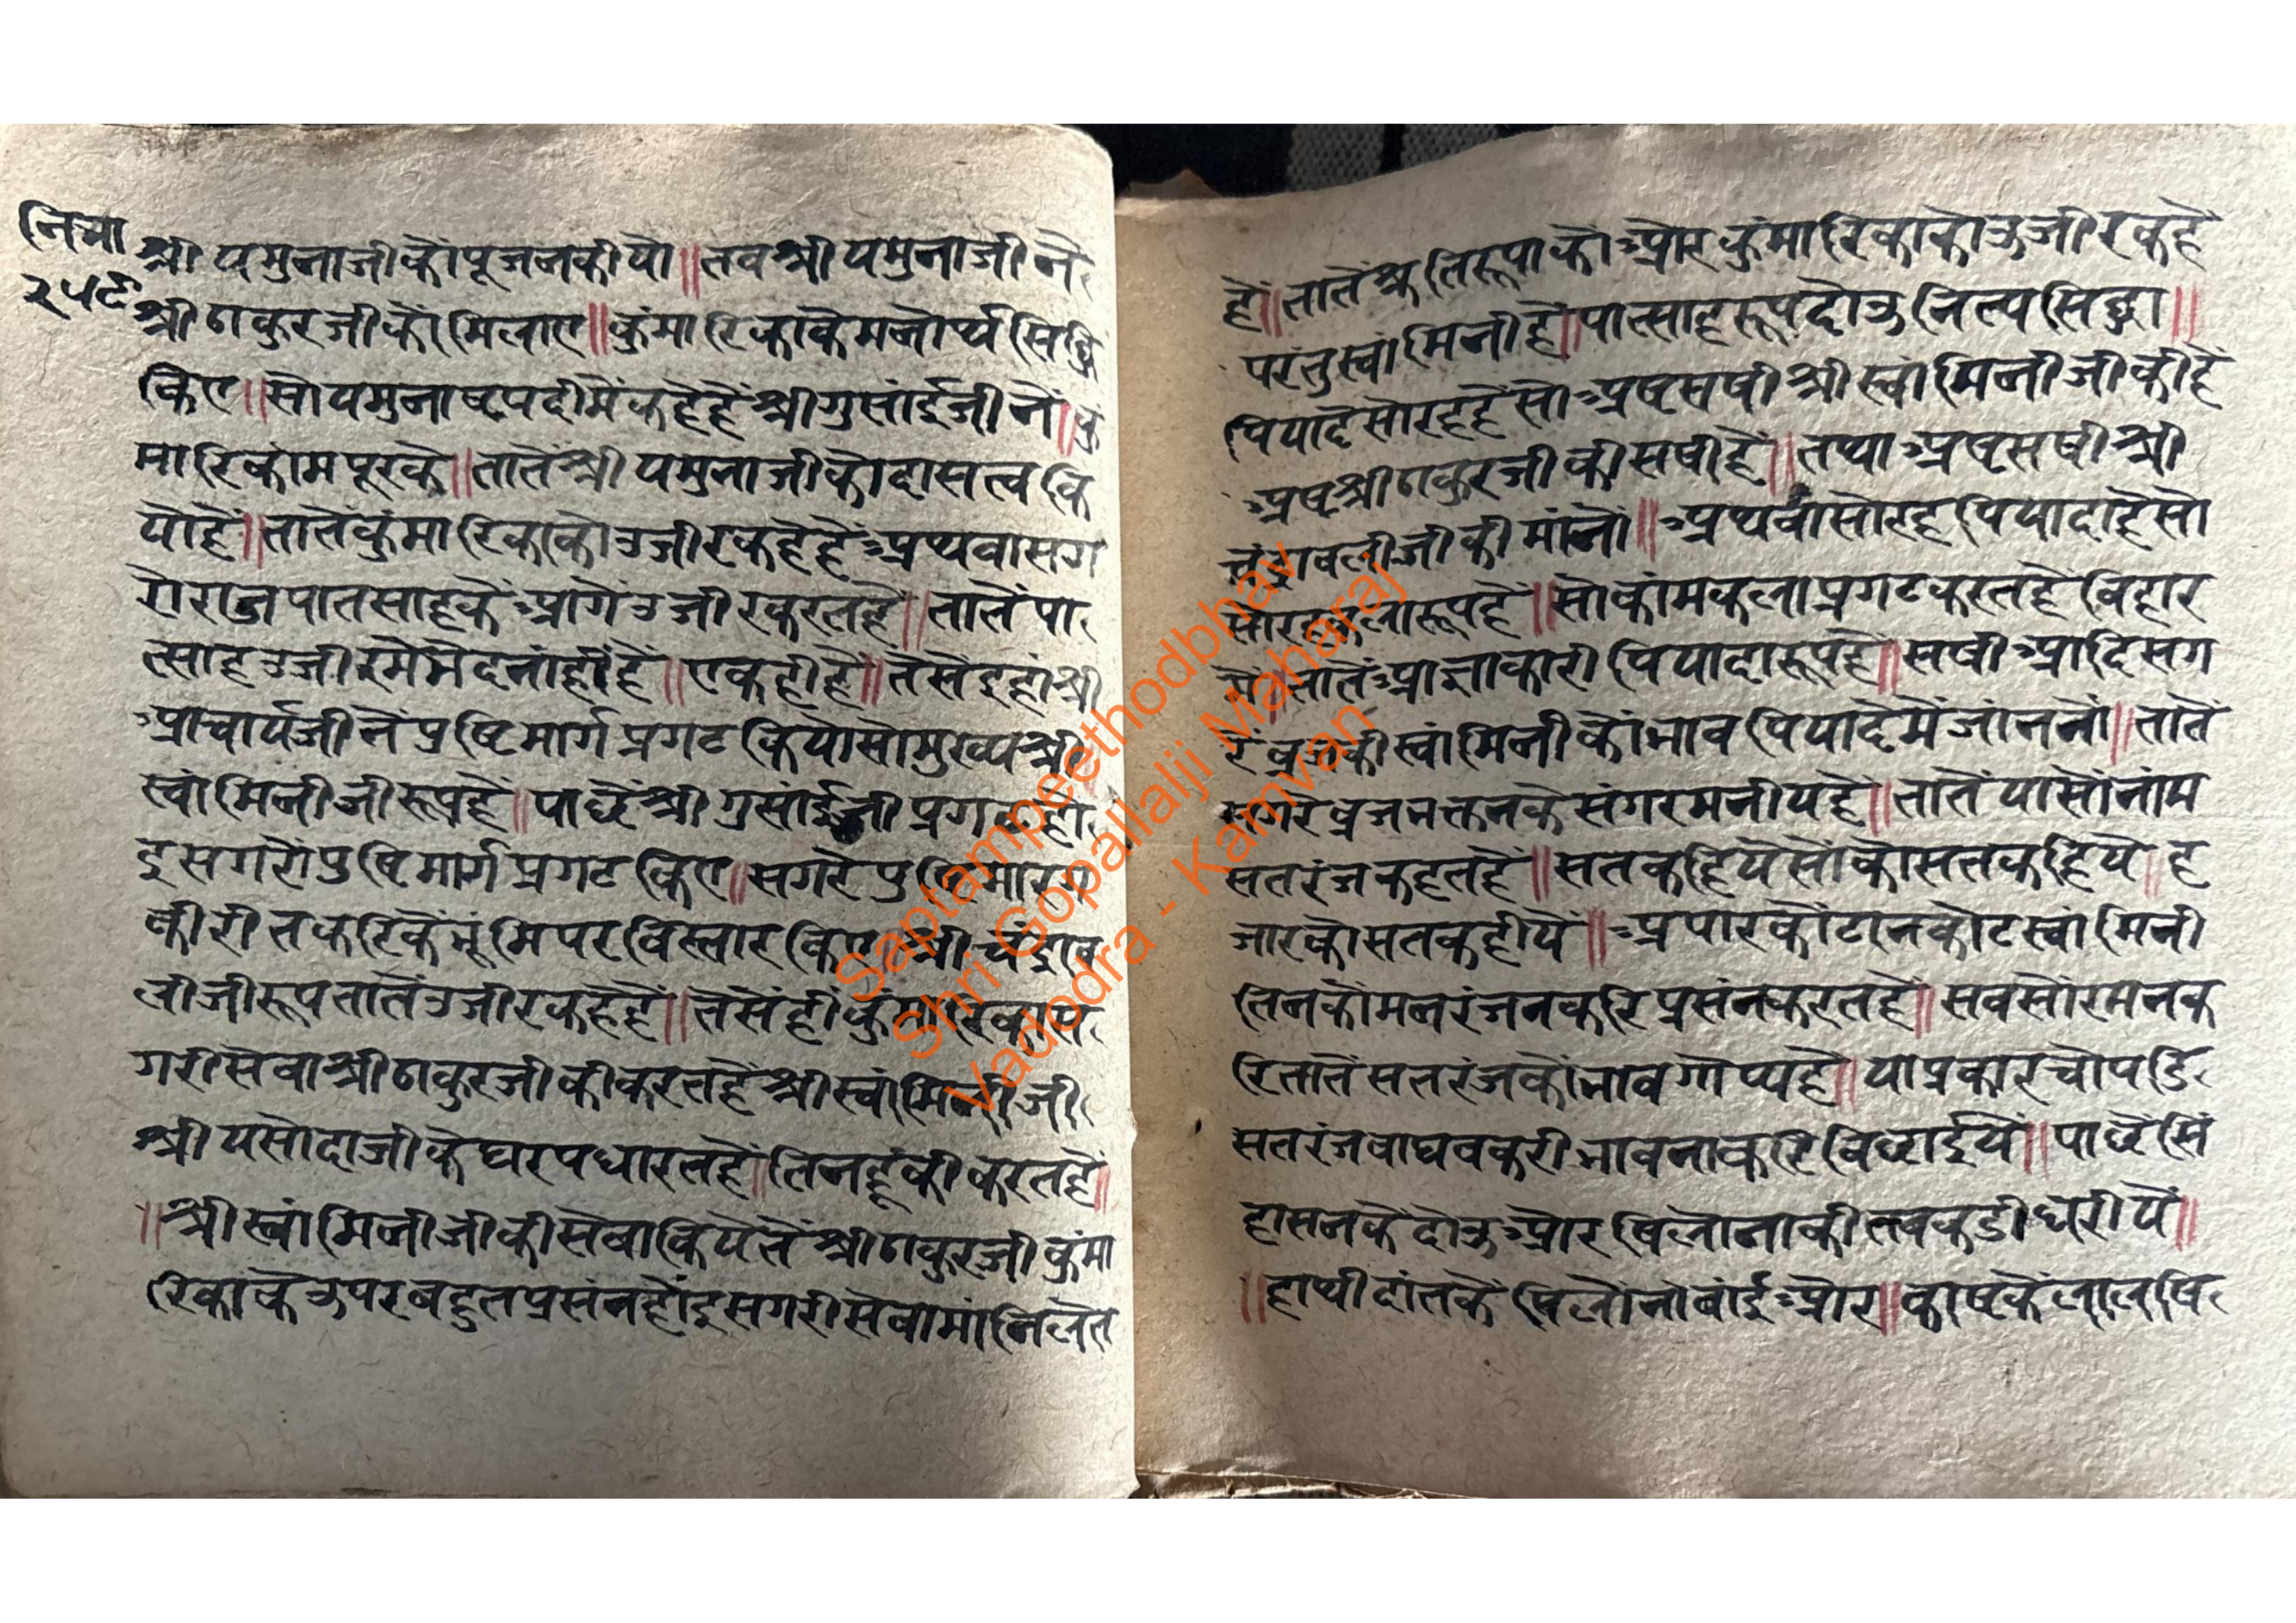 नित्या
२५९
श्री यमुनाजीकौं पूजनकीयौ॥ तब श्री यमुनाजी नें
श्री ठाकुरजीकौं मिलाए॥ कुंमारिकाके मनोर्थ सिद्धि
किए॥ सो यमुनाष्टपदीमें कहे हैं श्री गुसांईजी नें॥ कुं
मारिकांम पूरके॥ तातें श्री यमुनाजीको दासत्व कि
यो हैं॥ तातें कुंमारिकाको उजीर कहे हैं अथवा सग
रो राज पातसाहकें आगें उजीर करत हैं॥ तातें पा
त्साह उजीरमें भेद नांहीं हैं॥ एकही है॥ तेसें इहां श्री
आचार्यजी नें पुष्टिमार्ग प्रगट कियो सो मुख्य श्री
स्वांमिनीजी रूप हैं॥ पाछें श्री गुसांईजी प्रगट हो
इ सगरो पुष्टिमार्ग प्रगट किए॥ सगरे पुष्टिमारग
की रीत करिकें भूंमिपर विस्तार किए॥ श्री चंद्राव
लीजी रूप तातें उजीर कहे हैं॥ तेसें हीं कुंमारिका स
गरी सेवा श्री ठाकुरजीकी करत हैं श्री स्वांमिनीजी
श्री यसोदाजीके घर पधारत हैं॥ तिनहूंकी करत हैं॥
॥श्री स्वांमिनीजीकी सेवा कियेतें श्री ठाकुरजी कुंमा
रिकाके उपर बहुत प्रसंन होंइ सगरी सेवा मांनि लेत
हें॥ तातें श्रुतिरूपाको और कुंमारिकाको उजीर कहे
परंतु स्वांमिनी हैं॥ पात्साह रूप दोउ नित्य सिद्धा॥
पियादे सोरह हैं सो अष्टसषी श्री स्वांमिनीजीकी हैं
अष्ट श्री ठाकुरजीकी सषी हैं॥ तथा अष्टसषी श्री
चंद्रावलीजीकी मांनों॥ अथवा सोरह पियादा हैं सो
सोरह कला रूप हैं॥ सो कांमकला प्रगट करत हैं विहार
में॥ तातें आज्ञाकारी पियादा रूप हैं॥ सषी आदि सग
रें व्रजकी स्वांमिनीकों भाव पियादेमें जांननों॥ तातें
सगरे व्रजभक्तनके संग रमनीय हैं॥ तातें यासों नांम
सतरंज कहत हैं॥ सत कहिये सोंको सत कहिये॥ ह
जारको सत कहीयें॥ अपारकों टानकोट स्वांमिनी
तिनकों मनरंजन करि प्रसंन करत हैं॥ सबसों रमन क
रि तातें सतरंजकों भाव गोप्य हैं॥ या प्रकार चोपडि
सतरंज वाघ बकरी भावना करि विछाईयें॥ पाछें सिं
हासनके दोउ और षिलोनाकी तबकडी धरीयें॥
॥हाथी दांतके षिलोंनो बांई और॥ काष्टके लाल षि